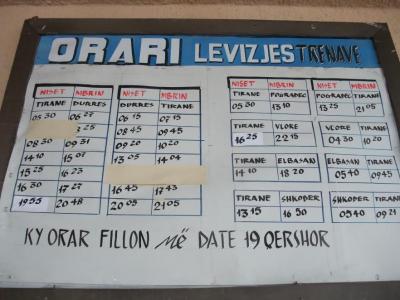 ORARI LEVIZJES TRENAVE
NISET MBRIN
TIRANE DURRES
05 30 06 27
25
08 30 09 31
14 10 15 07
15 25 16 23
16 30 17 27
19 55 20 48
NISET MBRIN
DURRES TIRANE
06 15 07 15
08 45 09 45
09 20 10 20
13 05 14 04
16 45 17 43
20 05 21 05
NISET MBRIN
TIRANE POGRADEC
05 30 13 10
NISET MBRIN
POGRADEC TIRANE
13 25 21 05
TIRANE VLORE
16 25 22 15
VLORE TIRANE
04 30 10 20
TIRANE ELBASAN
14 10 18 20
ELBASAN TIRANE
05 40 09 45
TIRANE SHKODER
13 15 16 50
SHKODER TIRANE
05 40 09 21
KY ORAR FILLON Më DATE 19 QERSHOR